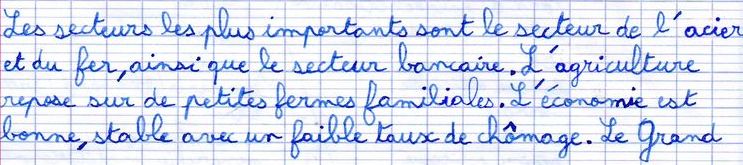 Les secteurs les plus importants sont le secteur de l'acier
et du fer, ainsi que le secteur bancaire. L'agriculture
repose sur de petites fermes familiales. L'économie est
bonne, stable avec un faible taux de chômage. Le Grand